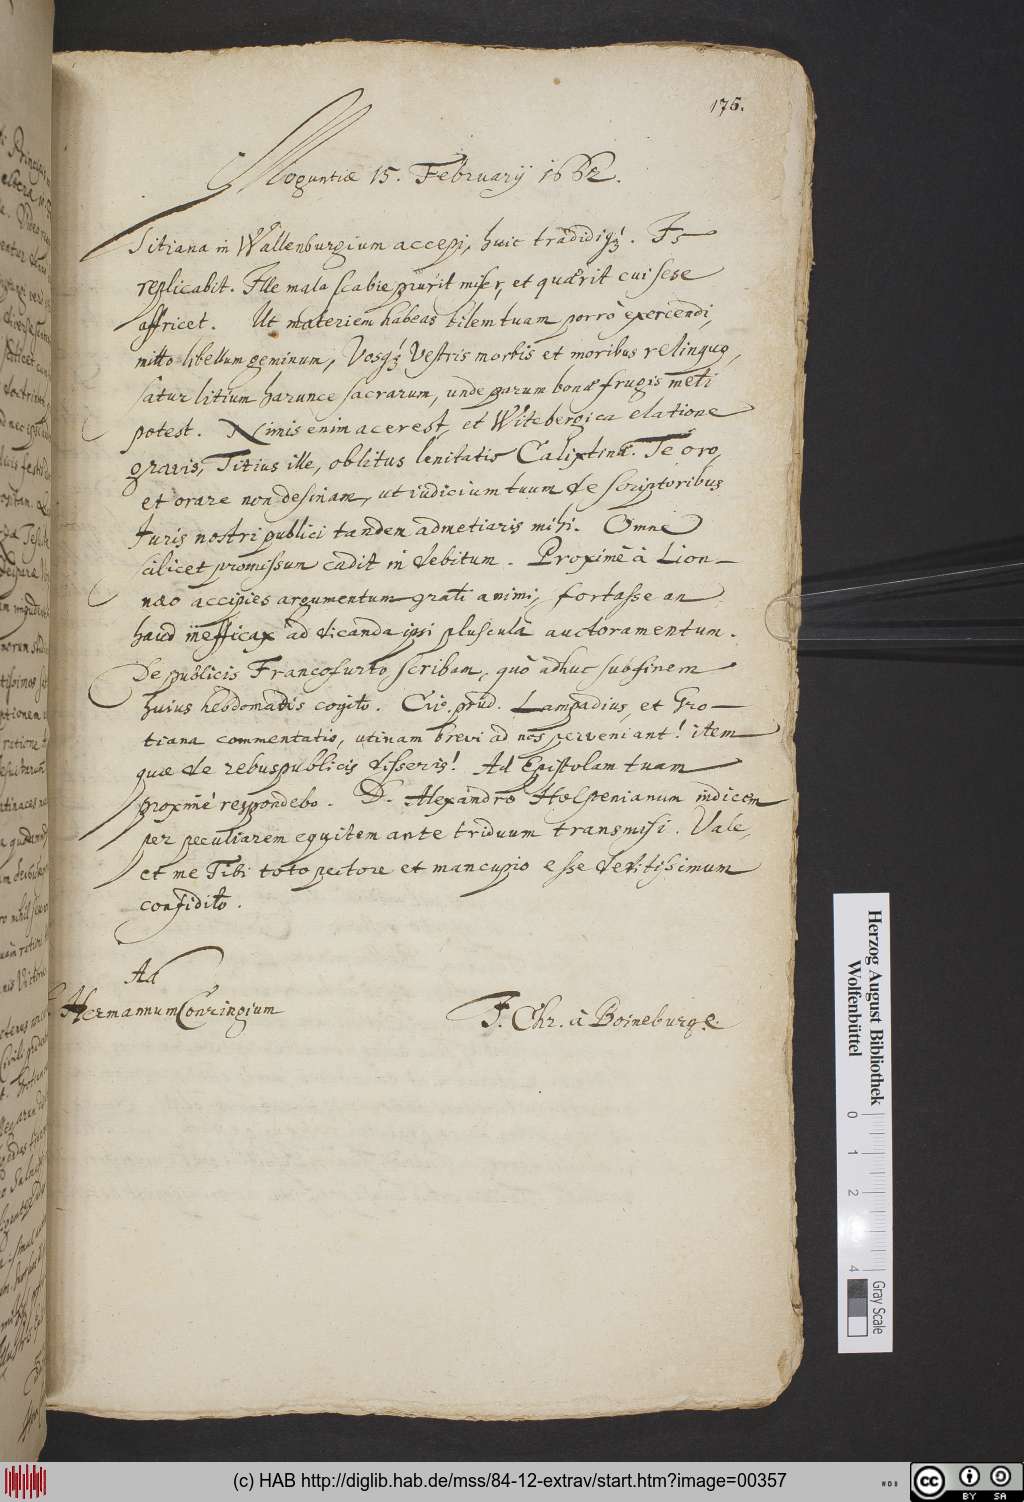 176.
Moguntiæ 15. Februarij 1662.
Titiana in Wallenburgium accepi, huic tradidiq́₃. Is
replicabit. Ille mala scabie prurit miser, et quærit cui sese
affricet. Ut materiem habeas bilem tuam porrò exercendi,
mitto libellum geminum, Vosq́₃ Vestris morbis et moribus relinquo,
satur litium harunce sacrarum, unde parum bonæ frugis meti
potest. Nimis enim acer est, et Witebergica elatione
gravis, Titius ille, oblitus lenitatis Calixtinæ. Te oro,
et orare non desinam, ut iudicium tuum de scriptoribus
Juris nostri publici tandem admetiaris mihi. Omne
scilicet promissum cadit in debitum. Proximè à Lion-
næo accipies argumentum grati animi, fortasse an
haud inefficax ad dicanda ipsi pluscula auctoramentum.
De publicis Francofurto scribam, quò adhuc sub finem
huius hebdomadis cogito. Civ. prud. Lampadius, et Gro-
tiana commentatio, utinam brevi ad nos perveniant! item
quæ de rebuspublicis disseris! Ad Epistolam tuam
proximè respondebo. D. Alexandro Holstenianum indicem
per peculiarem equitem ante triduum transmisi. Vale,
et me Tibi toto pectore et mancupio esse devitissimum
confidito.
Ad
Hermannum Conringium
J. Chr. à Boineburg.
Herzog August Bibliothek
Wolfenbüttel
0 1 2 4
Gray Scale
(c) HAB http://diglib.hab.de/mss/84-12-extrav/start.htm?image=00357
cc BY SA